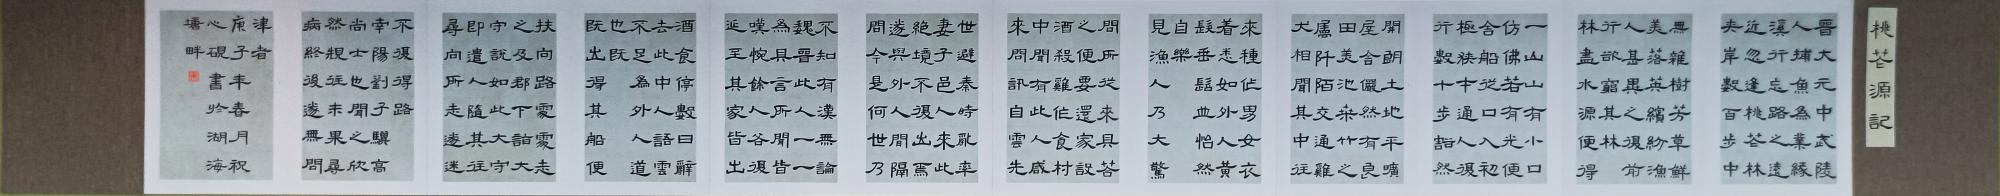 桃花源記
晉大元中武陵
人捕魚為業緣
溪行忘路之遠
近忽逢桃花林
夾岸數百步中
無雜樹芳草鮮
美落英繽紛漁
人甚異之復前
行欲窮其林
林盡水源便得
一山山有小口
仿佛若有光便
舍船從口入初
極狹才通人復
行數十步豁然
開朗土地平曠
屋舍儼然有良
田美池桑竹之
屬阡陌交通雞
犬相聞其中往
來種作男女衣
着悉如外人黃
髮垂髫並怡然
自樂
見漁人乃大驚
問所從來具答
之便要還家設
酒殺雞作食村
中聞有此人咸
來問訊自雲先
世避秦時亂率
妻子邑人來此
絕境不復出焉
遂與外人間隔
問今是何世乃
不知有漢無論
魏晉此人一一
為具言所聞皆
嘆惋餘人各復
延至其家皆出
酒食停數日辭
去此中人語雲
不足為外人道
也既
既出得其船便
扶向路處處走
之及郡下詣大
守說如此大守
即遣人隨其往
尋向所走遂迷
不復得路
南陽劉子驥高
尚士也聞之欣
然規往未果尋
病終後遂無問
津者
庚子年春月祝
心硯書於湖海
塘畔